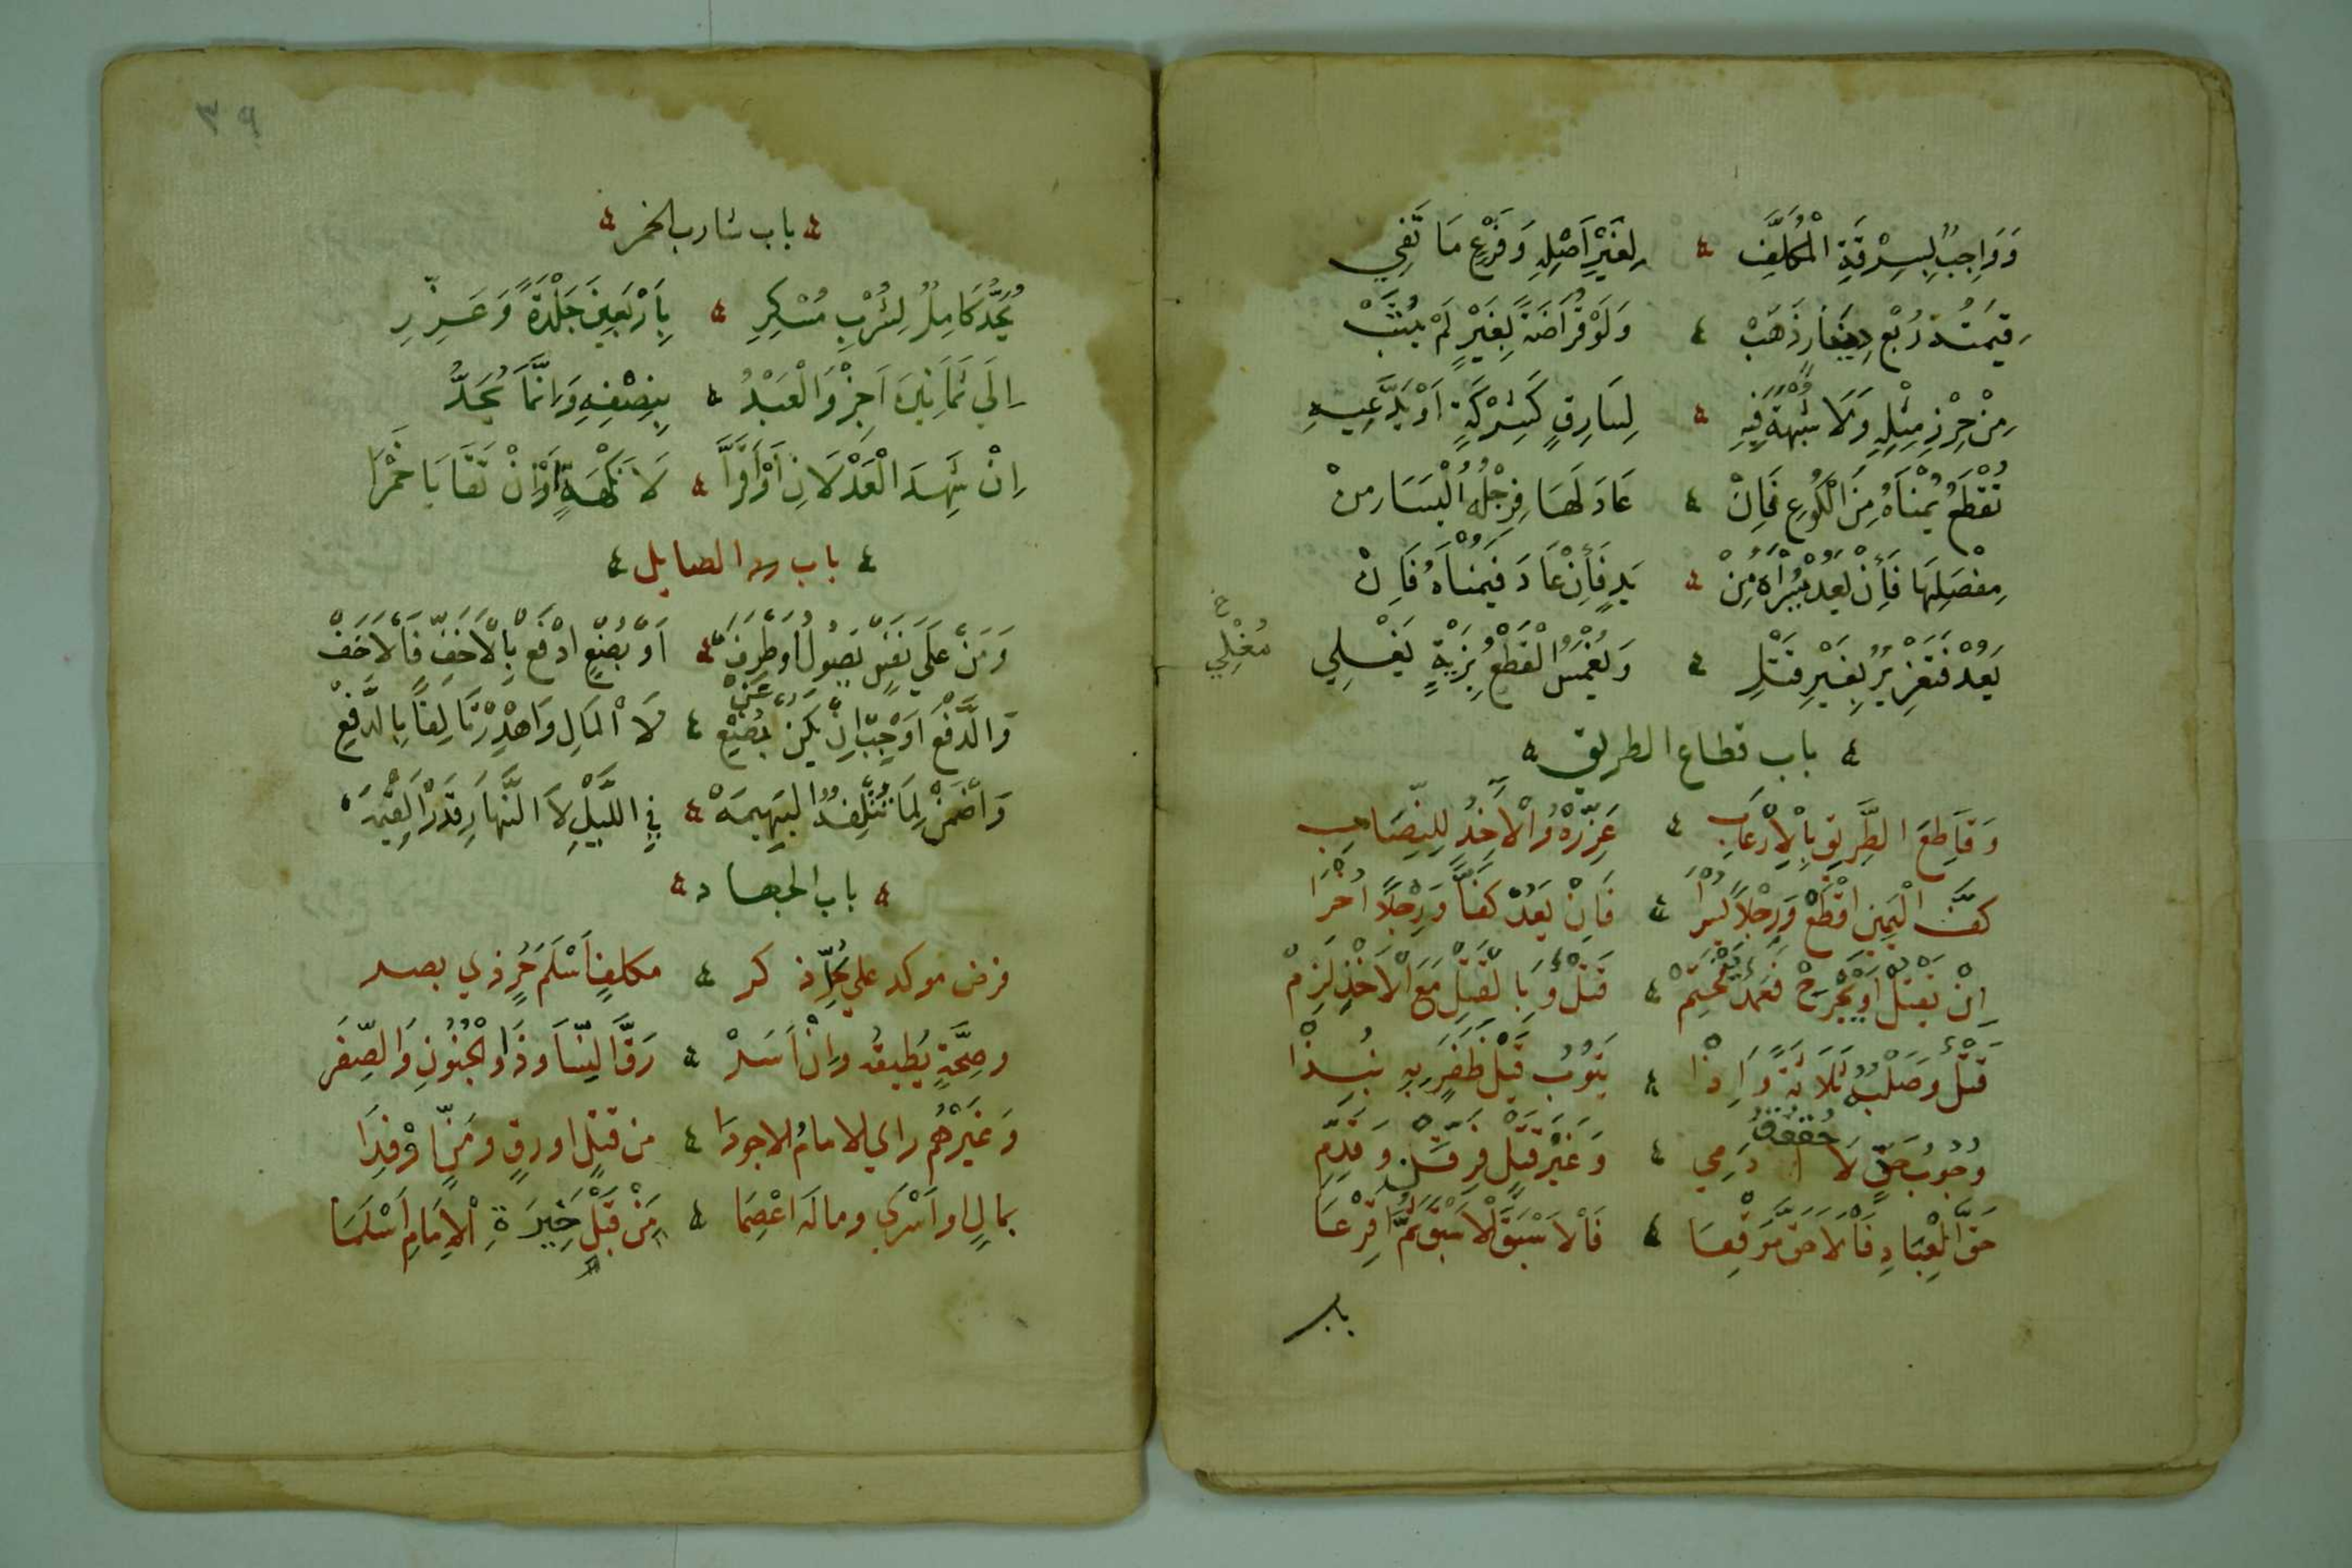 وَوَاجِبٌ لِسِرْقَةِ الْمُكَلَّفِ ۀ لِغَيْرِ اَصْلِهِ وَفَرْعٍ مَا تَفِي
قِيمَتُهُ رُبْعَ دِينَارِ ذَهَبْ ۀ وَلَوْ قُرَاضَةً بِغَيْرٍ لَمْ يُشَبْ
مِنْ حِرْزِ مِثْلِهِ وَلَا شُبْهَةَ فِيهِ ۀ لِسَارِقٍ كَشِرْكَةٍ اَوْ يَدَّعِيهِ
تُقْطَعُ يُمْنَاهُ مِنَ الْكُوعِ فَاِنْ ۀ عَادَ لَهَا فِرِجْلُهُ الْيَسَارِ مِنْ
مِفْصَلِهَا فَأِنْ يَعُدْ يُسْرَاهُ مِنْ ۀ يَدٍ فَأِنْ عَادَ فَيُمْنَاهُ فَاِنْ
يَعُدْ فَتَعْزِيرٌ بِغَيْرِ قَتْلِ ۀ وَيُغْمَسُ الْقَطْعُ بِزَيْةٍ يَغْلِي
خ
مُغْلِي
ۀ باب قطاع الطريق ۀ
وَقَاطِعَ الطَّرِيقِ بِالْاِرْعَابِ ۀ عَزِّرْهُ وَالْآخِذُ لِلنِّصَابِ
كَفَّ الْيَمِينِ اقْطَعْ وَرِجْلًا يُسْرَا ۀ فَاِنْ يَعُدْ كَفًّا وَرِجْلًا اُخْرَا
اِنْ يَقْتُلْ اَوْ يَجْرَحْ فَعَمْدٌ يَنْحَتِمْ ۀ قَتْلٌ وَبِالْقَتْلِ مَعَ الْاَخْذِ لَزِمْ
قَتْلٌ وَصَلْبُهُ ثَلَاثَةً وَاِذْا ۀ يَتُوبُ قَبْلَ ظَفَرٍ بِهِ نُبِذَا
وُجُوبُ حَدٍّ لَا حُقُوقُ آدَمِي ۀ وَغَيْرَ قَتْلٍ فَرِّقَنْ وَقَدِّمِ
حَقَّ الْعِبَادِ فَالْاَخَفَّ مَوْقِعَا ۀ فَالْاَسْبَقَ الْاَسْبَقَ ثُمَّ اقْرِعَا
باب
٣٩
ۀ باب شارب الخمر ۀ
يُحَدُّ كَامِلٌ لِشُرْبِ مُسْكِرِ ۀ بِاَرْبَعِينَ جَلْدَةً وَعَزِّرِ
اِلَى ثَمَانِينَ اَجِزْ وَالْعَبْدُ ۀ بِنِصْفِهِ وَاِنَّمَا يُحَدُّ
اِنْ شَهِدَ الْعَدْلَانِ اَوْ اَقَرَّا ۀ لَا نَكْهَةٍ اَوْ اِنْ تَقَايَا خَمْرَا
ۀ باب الصايل ۀ
وَمَنْ عَلَى نَفْسٍ يَصُولُ اَوْ طَرَفْ ۀ اَوْ بُضْعٍ ادْفَعْ بِالْاَخَفِّ فَالْاَخَفْ
وَالدَّفْعَ اَوْجِبْ اِنْ يَكُنْ عَنْ بُضْعِ ۀ لَا الْمَالِ وَاهْدِرْ تَالِفًا بِالدَّفْعِ
وَاضْمَنْ لِمَا تُتْلِفُهُ الْبَهِيمَهْ ۀ فِي اللَّيْلِ لَا النَّهَارِ قَدْرَ الْقِيمَهْ
ۀ باب الجهاد ۀ
فرض موكد علي كُلِّ ذكر ۀ مكلفٍ اَسْلَمَ حُرٍّ ذي بصر
وصِحَّةٍ يُطِيقُه وَاِنْ اَسَرْ ۀ رَقَّ النِّسَا وَذُوا الْجُنُونِ وَالصِّغَرْ
وَغَيْرُهُم راي الامامُ الاجودَا ۀ من قتلٍ او رقٍ ومَنٍّ اوْ فِدَا
بمالٍ او اَسْرَي وماله اعْصِمَا ۀ مَنْ قَبْلَ خِيرَةِ الْاِمَامِ اَسْلَمَا